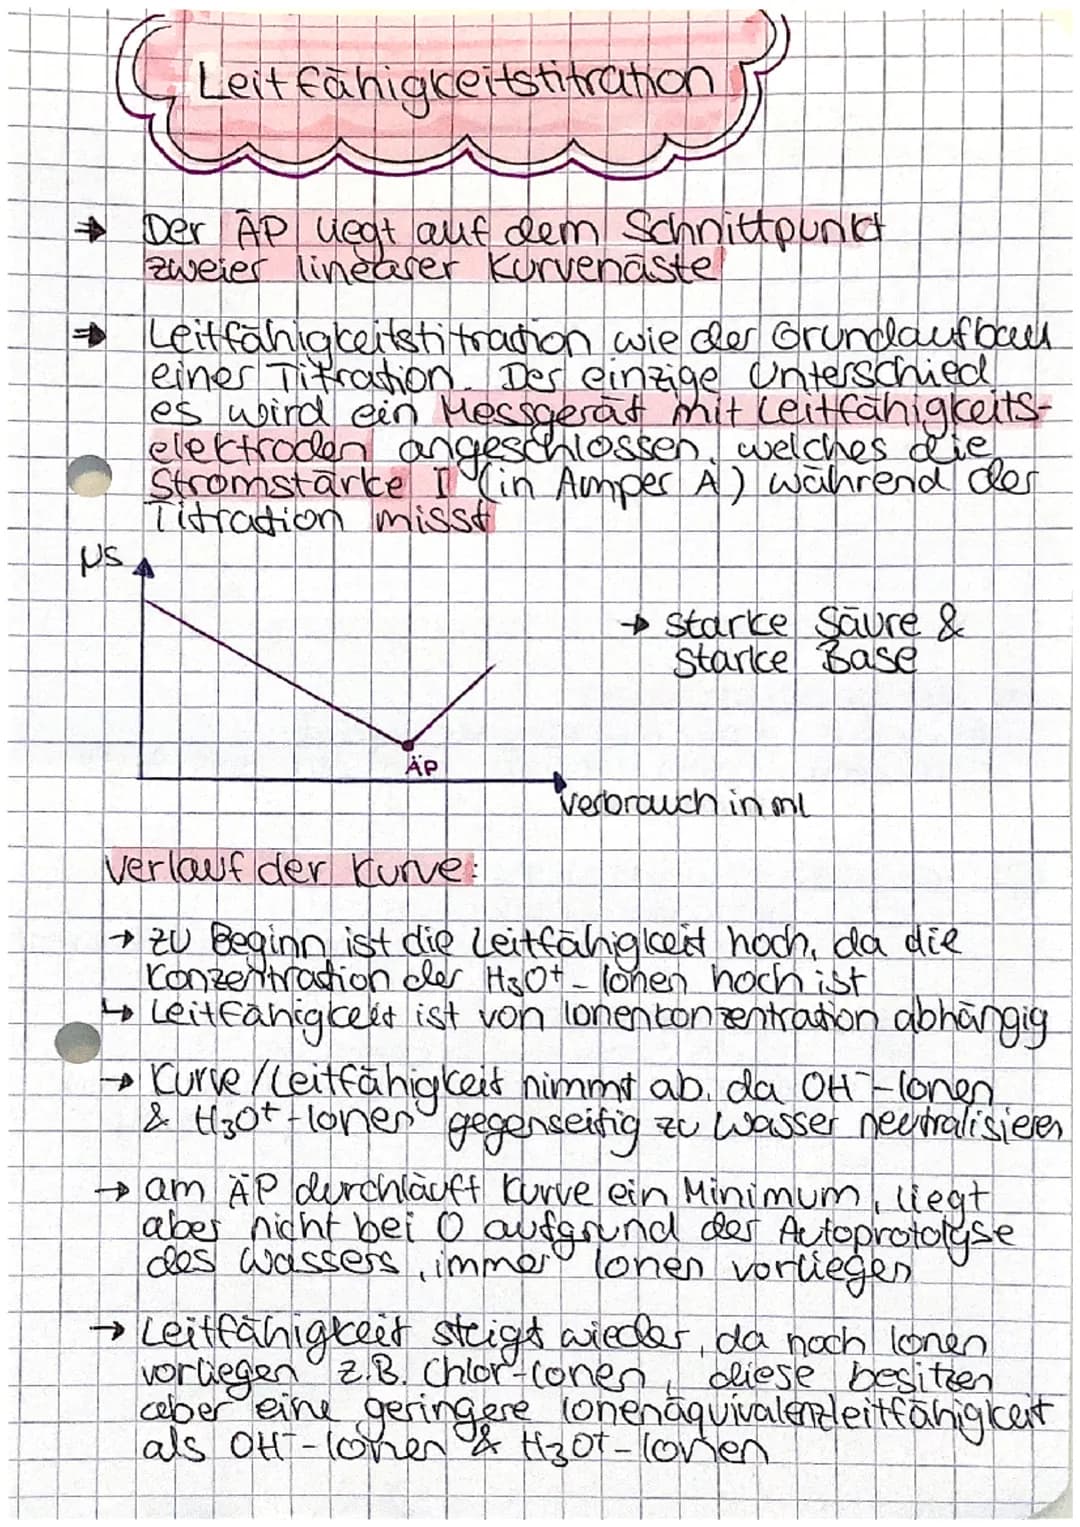 Leitfähigkeitstitration
⇒ Der ÄP liegt auf dem Schnittpunkt
zweier linearer Kurvenäste
⇒ Leitfähigkeitstitration wie der Grundaufbau
einer Titration. Der einzige Unterschied
es wird ein Messgerät mit Leitfähigkeits-
elektroden angeschlossen, welches die
Stromstärke I (in Amper A) während der
Titration misst
µS
→ starke Säure &
starke Base
ÄP
Verbrauch in ml
Verlauf der Kurve:
→ zu Beginn ist die Leitfähigkeit hoch, da die
Konzentration der H₃O⁺-Ionen hoch ist
↳ Leitfähigkeit ist von Ionenkonzentration abhängig
→ Kurve/Leitfähigkeit nimmt ab, da OH⁻-Ionen
& H₃O⁺-Ionen gegenseitig zu Wasser neutralisieren
→ am ÄP durchläuft Kurve ein Minimum, liegt
aber nicht bei 0 aufgrund der Autoprotolyse
des Wassers, immer Ionen vorliegen
→ Leitfähigkeit steigt wieder, da noch Ionen
vorliegen z.B. Chlor-Ionen, diese besitzen
aber eine geringere Ionenäquivalenzleitfähigkeit
als OH⁻-Ionen & H₃O⁺-Ionen